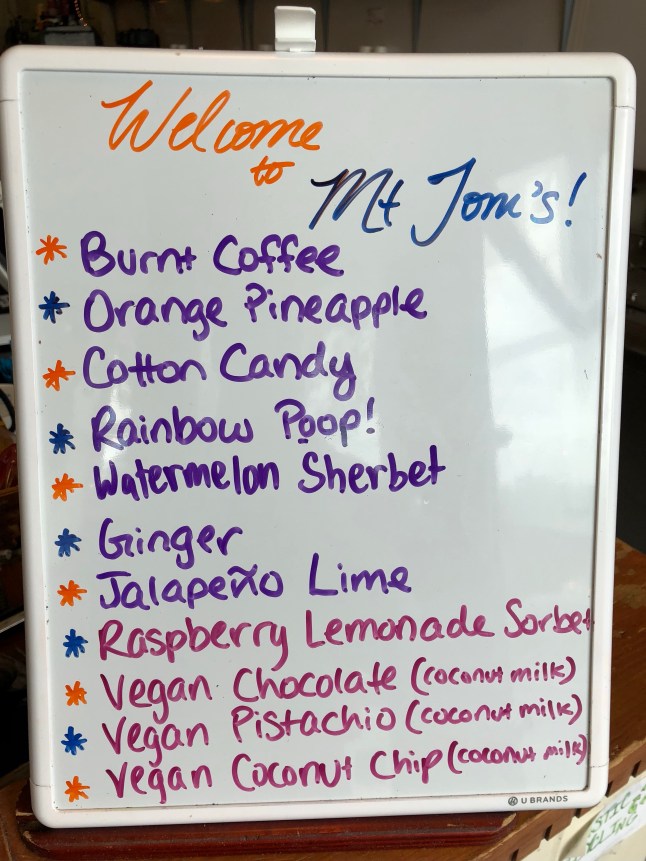 Welcome
to
Mt Tom's!
* Burnt Coffee
* Orange Pineapple
* Cotton Candy
* Rainbow Poop!
* Watermelon Sherbet
* Ginger
* Jalapeño Lime
* Raspberry Lemonade Sorbet
* Vegan Chocolate (coconut milk)
* Vegan Pistachio (coconut milk)
* Vegan Coconut Chip (coconut milk)
U BRANDS